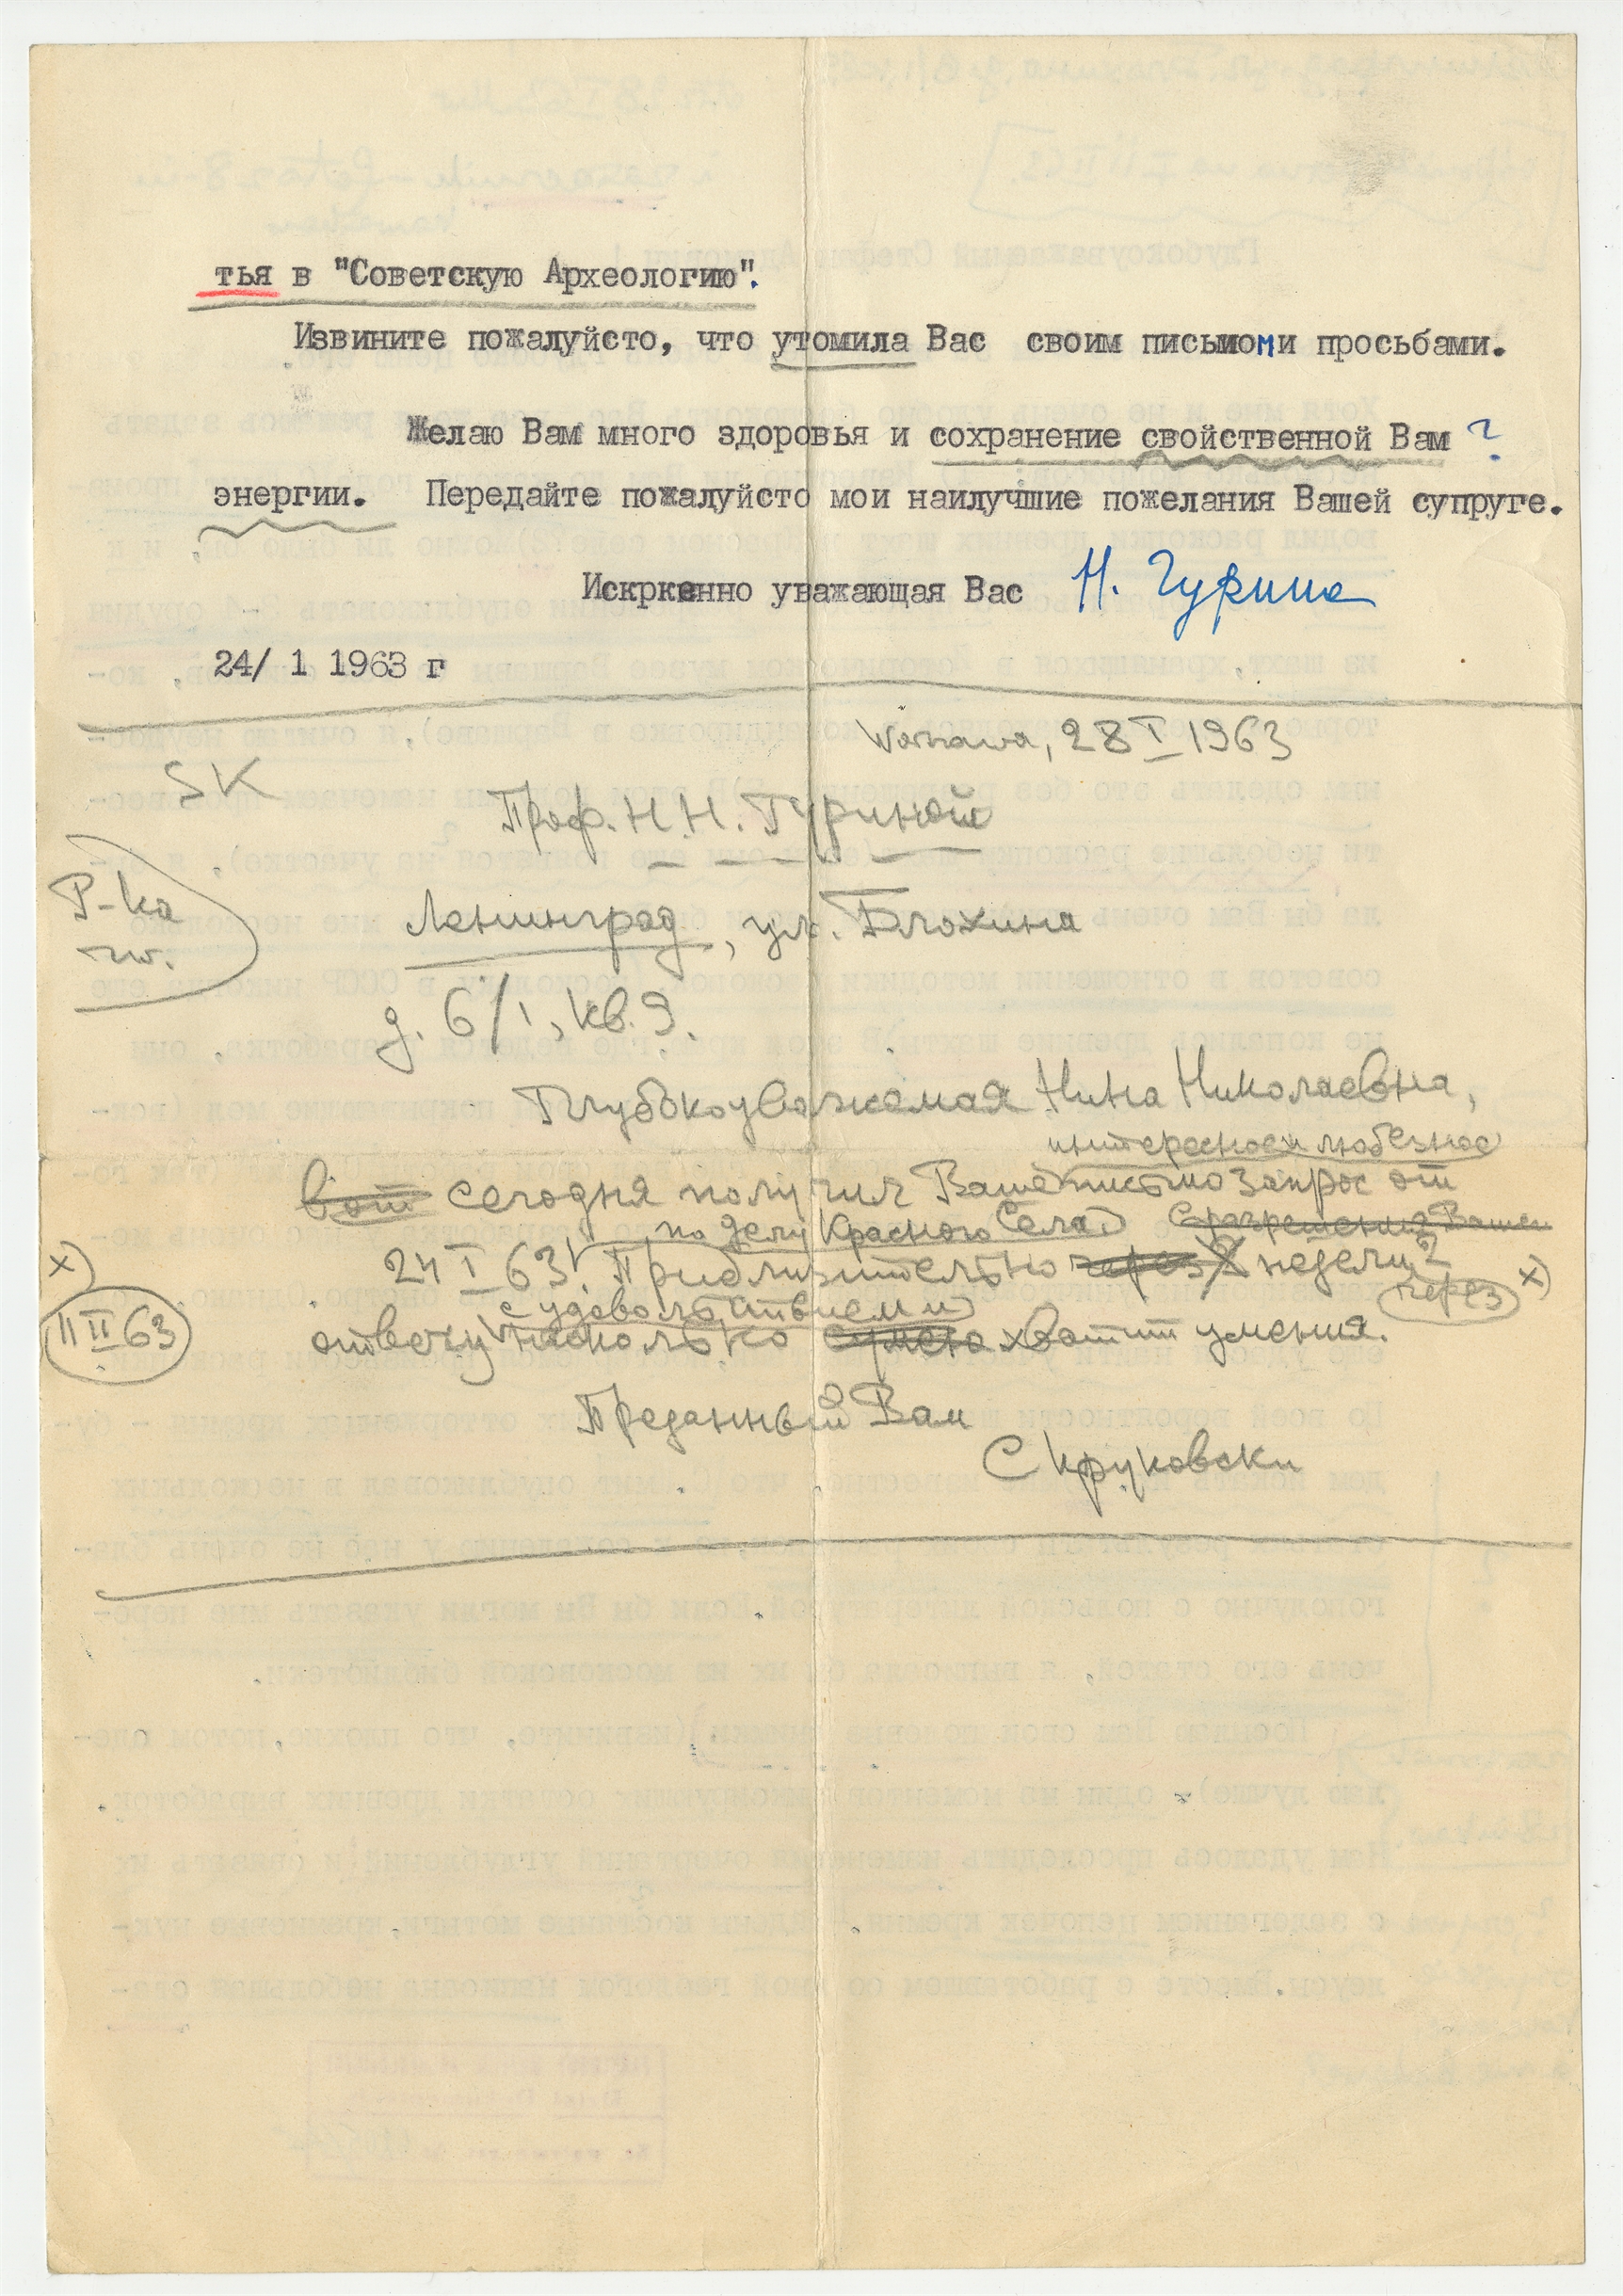 тья в "Советскую Археологию".
Извините пожалуйсто, что утомила Вас своим письмом и просьбами.
Желаю Вам много здоровья и сохранение свойственной Вам ?
энергии. Передайте пожалуйсто мои наилучшие пожелания Вашей супруге.
Искркенно уважающая Вас Н. Гурина
24/ 1 1963 г
Warszawa, 28 I 1963
SK
Проф. Н.Н. Гуриной
P-ka
zw.
Ленинград, ул. Блохина
д. 6/1, кв. 9.
Глубокоуважемая Нина Николаевна,
интересное и любезное
вот сегодня получил Ваше письмо запрос от
по делу Красного Села
24 I 63 г. Приблизительно через 2 недели 2
x)
через x)
11 II 63
с удовольствием и
отвечу насколько сумею хватит умения.
Преданный Вам
С Круковски